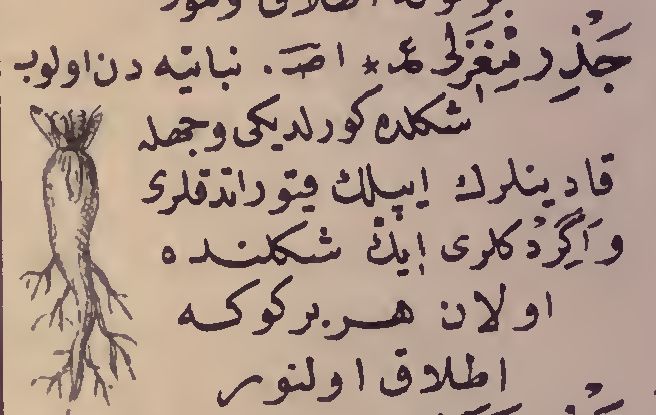 جَذْرِ مِغْزَلِی ع * اص. نباتیه دن اولوب
شکلده کورلدیکی وجهله
قادینلرك ایپلك قیتوراتدقلری
واَگِرْدکلری ایك شکلنده
اولان هر بر کوکه
اطلاق اولنور